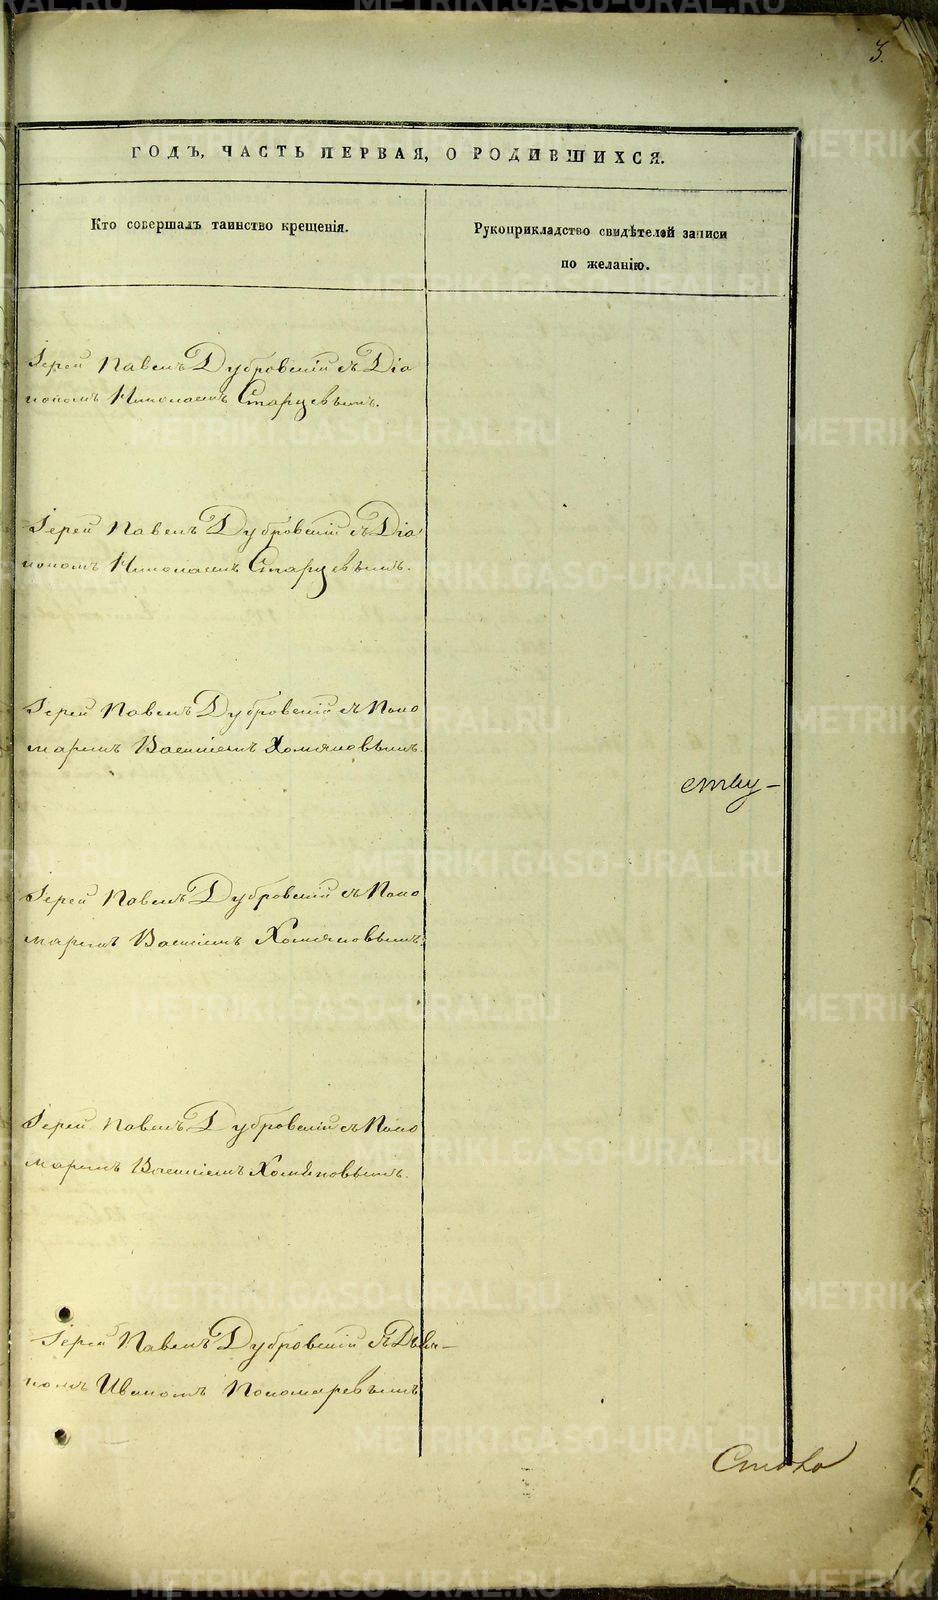 3.
ГОДЪ, ЧАСТЬ ПЕРВАЯ, О РОДИВШИХСЯ.
Кто совершалъ таинство крещенія.
Рукоприкладство свидѣтелей записи
по желанію.
Іерей Павелъ Дубровскій съ Діа
кономъ Николаемъ Старцевымъ.
Іерей Павелъ Дубровскій съ Діа
кономъ Николаемъ Старцевымъ.
Іерей Павелъ Дубровскій съ Поно
маремъ Василіемъ Хомяковымъ.
Іерей Павелъ Дубровскій съ Поно
маремъ Василіемъ Хомяковымъ.
Іерей Павелъ Дубровскій съ Поно
маремъ Василіемъ Хомяковымъ.
Іерей Павелъ Дубровскій съ Дья-
комъ Иваномъ Пономаревымъ
METRIKI.GASO-URAL.RU